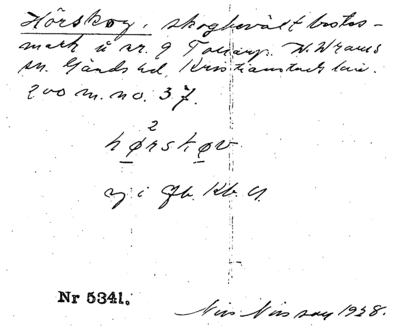 Hörskog, skogbeväxt betes-
mark å nr. 9 Tollarp. V. Vrams
sn. Gärds hd, Kristianstads län.
200 m. no. 37.
hø²rskøv
ej i Jb. Kb. el.
Nr 5341.
Nils Nilsson 1928.